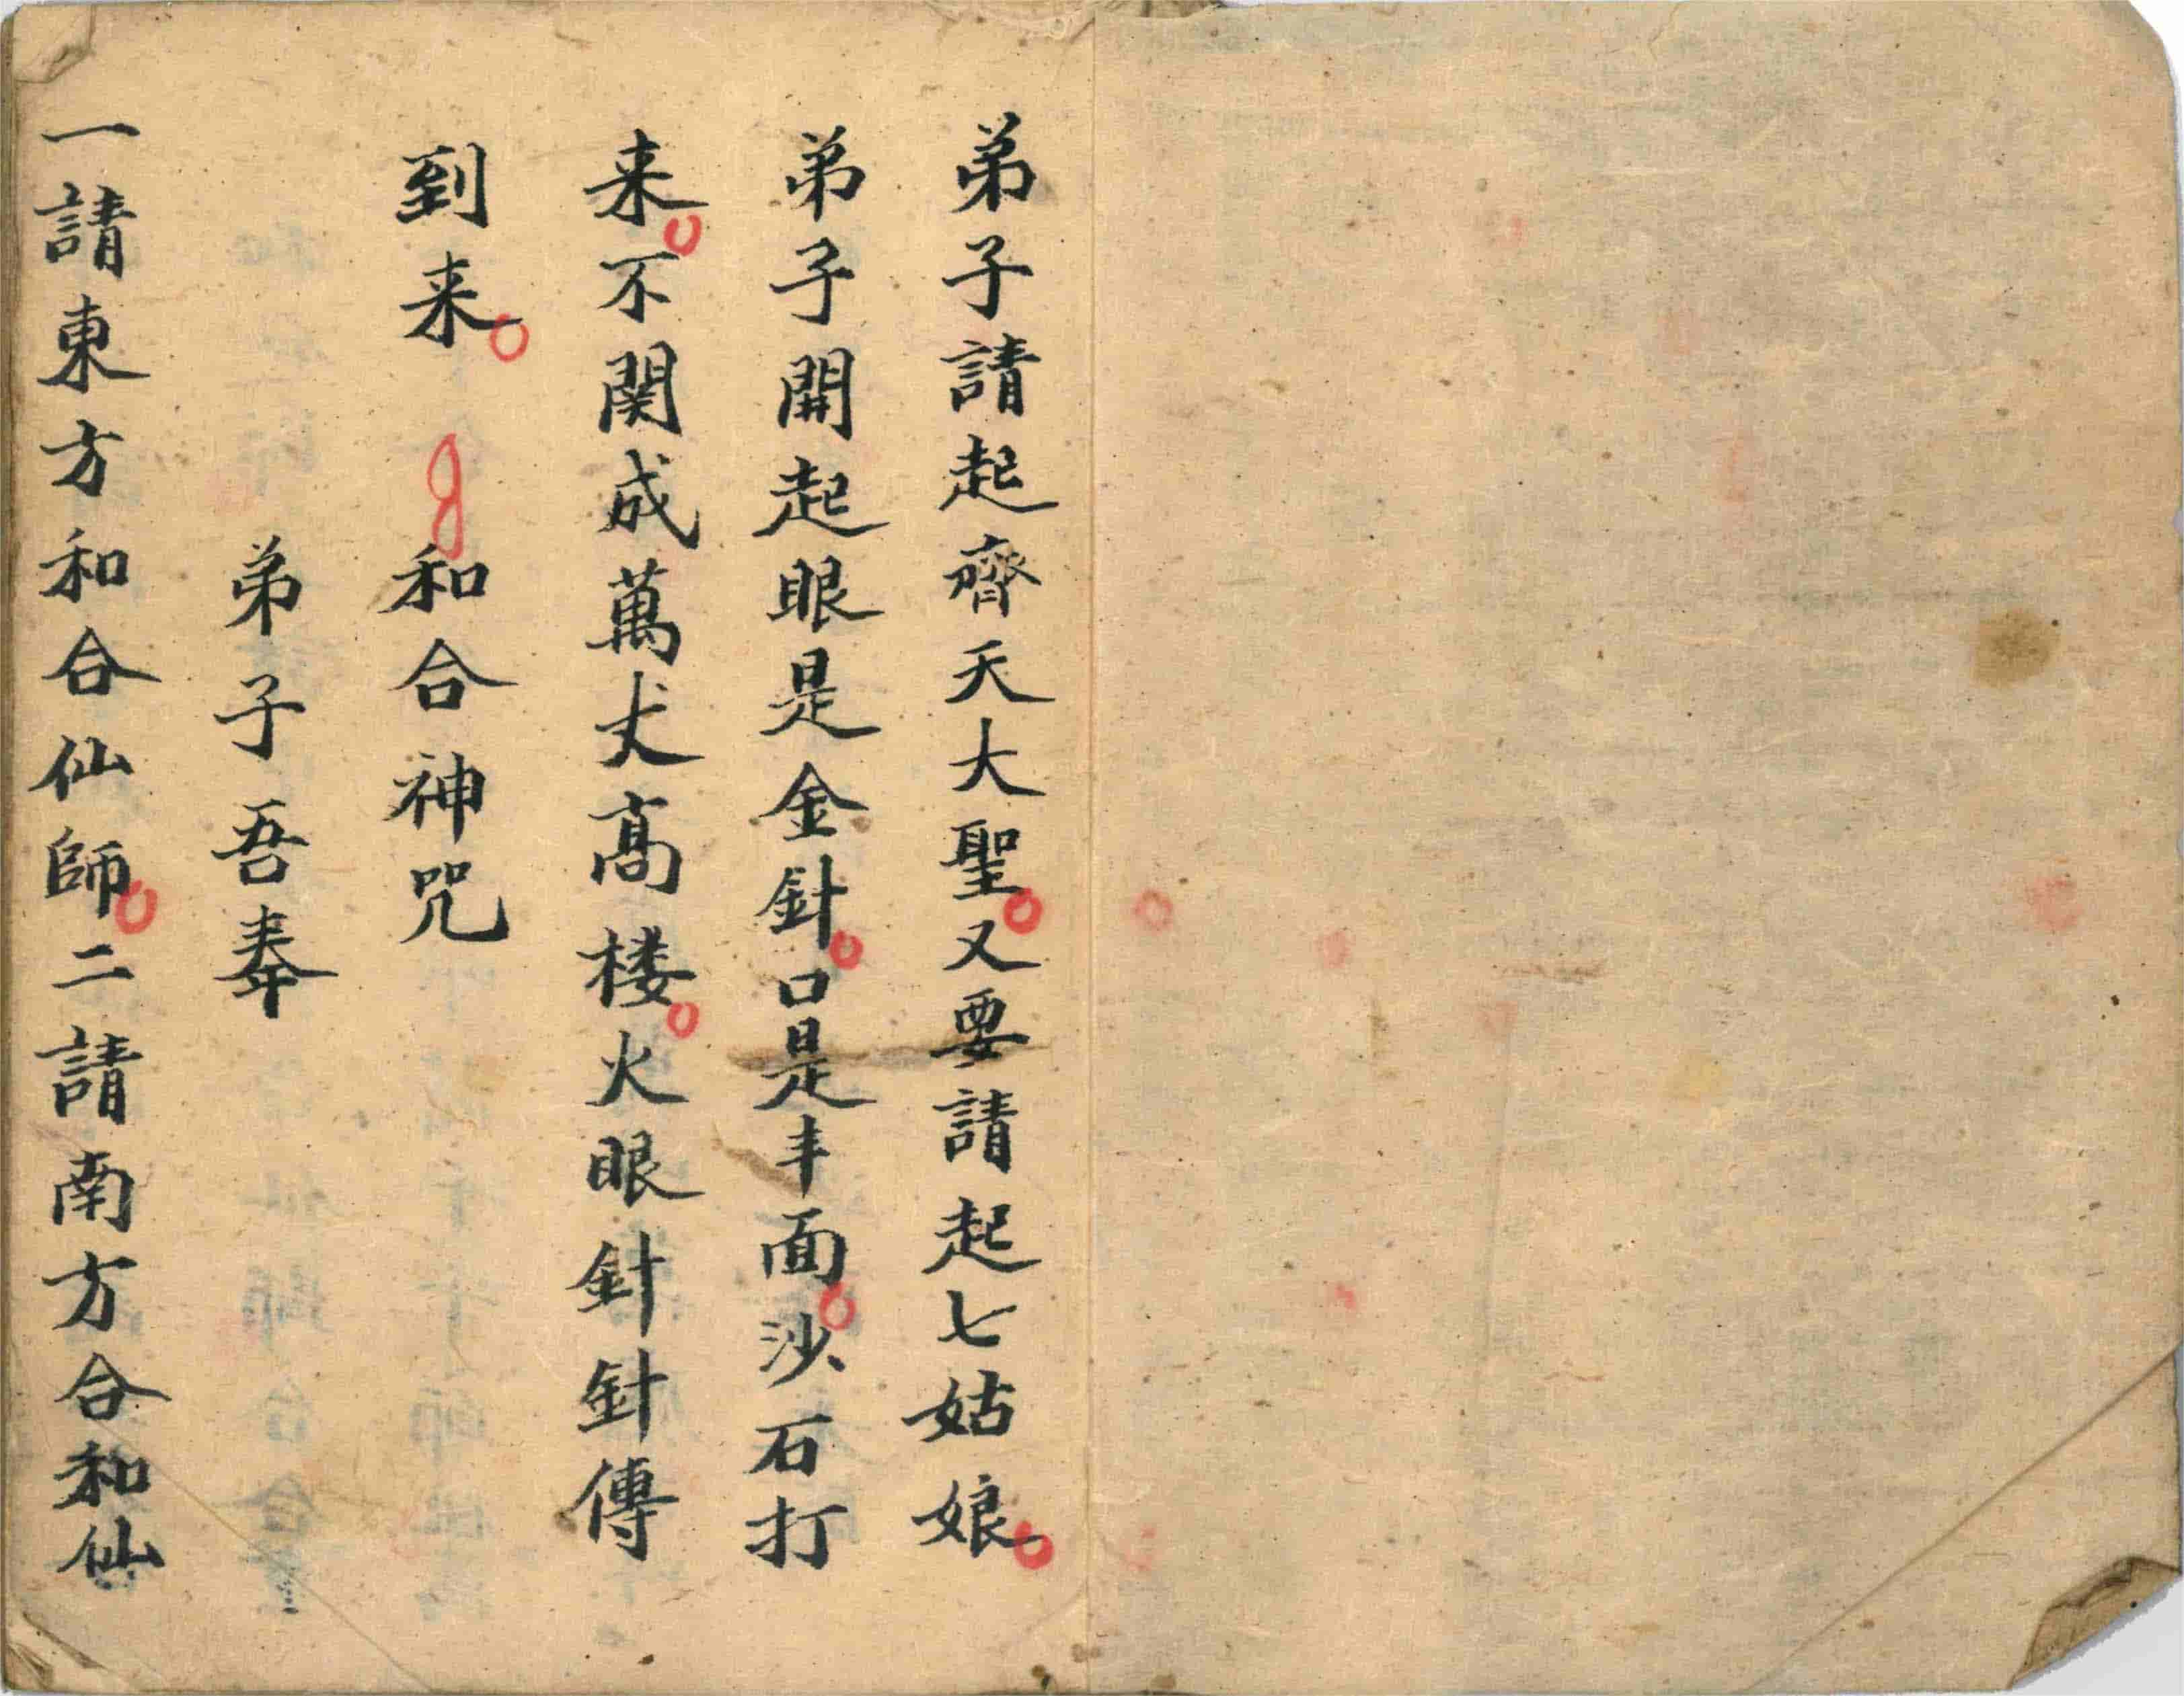 弟子請起齊天大聖。又要請起七姑娘。
弟子開起眼是金針。口是丰面。沙石打
来。不関成萬丈髙楼。火眼針針傳
到来。 和合神咒
弟子吾奉
一請東方和合仙師。二請南方合和仙